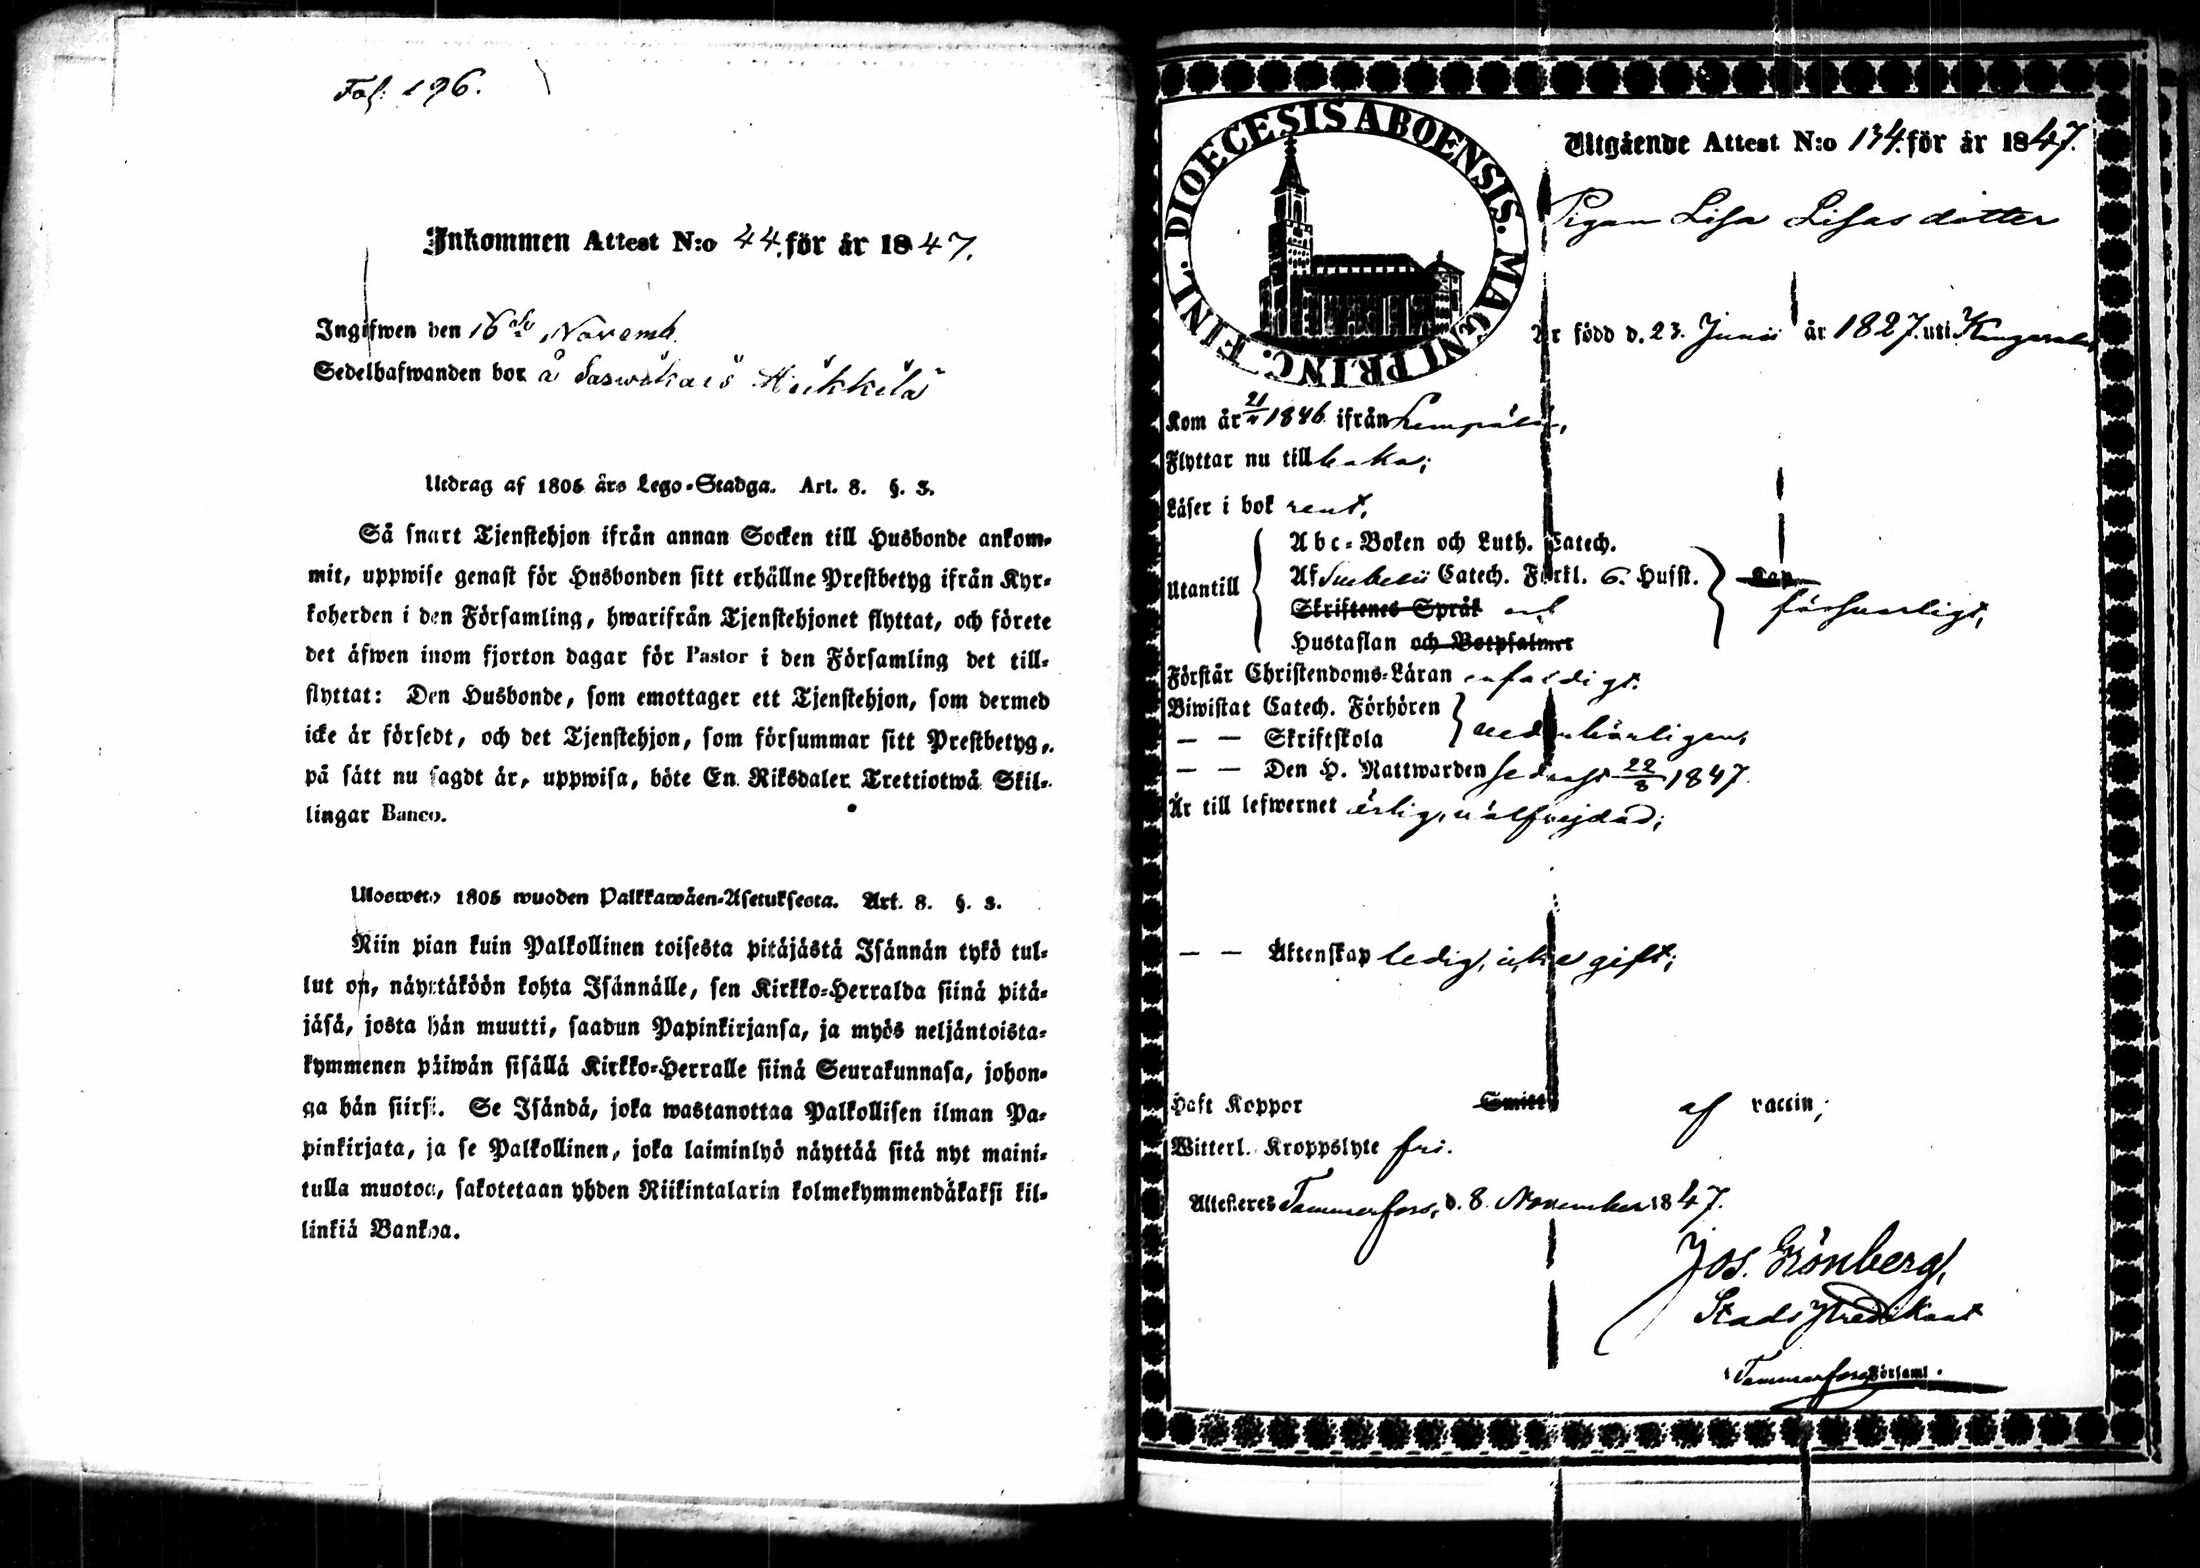 Fol: 196.
Inkommen Attest N:o 44. för år 1847.
Ingifwen den 16de Novemb.
Sedelhafwanden bor å Heikkilä
Utdrag af 1805 års Lego-Stadga. Art. 8. §. 3.
Så snart Tjenstehjon ifrån annan Socken till Husbonde ankom-
mit, uppwise genast för Husbonden sitt erhållne Prestbetyg ifrån Kyr-
koherden i den Församling, hwarifrån Tjenstehjonet flyttat, och förete
det äfwen inom fjorton dagar för Pastor i den Församling det till-
flyttat: Den Husbonde, som emottager ett Tjenstehjon, som dermed
icke är försedt, och det Tjenstehjon, som försummar sitt Prestbetyg,
på sätt nu sagdt är, uppwisa, böte En Riksdaler Trettiotwå Skil-
lingar Banco.
Uloswetо 1805 wuoden Palkkawäen-Asetuksesta. Art. 8. §. 3.
Niin pian kuin Palkollinen toisesta pitäjästä Isännän tykö tul-
lut on, näyttäköön kohta Isännälle, sen Kirkko-Herralda siinä pitä-
jäsä, josta hän muutti, saadun Papinkirjansa, ja myös neljäntoista-
kymmenen päiwän sisällä Kirkko-Herralle siinä Seurakunnasa, johon-
ga hän siirsi. Se Isändä, joka wastanottaa Palkollisen ilman Pa-
pinkirjata, ja se Palkollinen, joka laiminlyö näyttää sitä nyt maini-
tulla muotoa, sakotetaan yhden Riikintalarin kolmekymmendäkaksi kil-
linkiä Bankoa.
DIOECESIS ABOENSIS. MAGNI PRINC. FINL.
Utgående Attest N:o 134. för år 1847.
Pigan Lisa Lisas dotter
Är född d. 23. Junii år 1827. uti Kangasala,
Kom år 21/11 1846 ifrån Lempälä,
Flyttar nu tillbaka;
Läser i bok rent,
Utantill
Abc-Boken och Luth. Catech.
Af Svebelii Catech. Förkl. 6. Hufst. Cap
Skriftenes Språk och försvarligt,
Hustaflan och Botpsalmer
Förstår Christendoms-Läran enfaldigt.
Biwistat Catech. Förhören
— — Skriftskola vederbörligen,
— — Den H. Nattwarden sednast 22/8 1847.
Är till lefwernet ärlig, välfrejdad;
— — Äktenskap ledig, icke gift;
Haft Koppor Smitt af vaccin;
Witterl. Kroppslyte fri.
Attesteres Tammerfors, d. 8. November 1847.
Jos. Grönberg,
Stads Predikant
Tammerfors Församl.